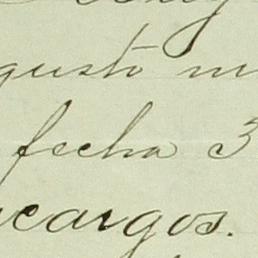 gusto m
fecha 3
cargos.